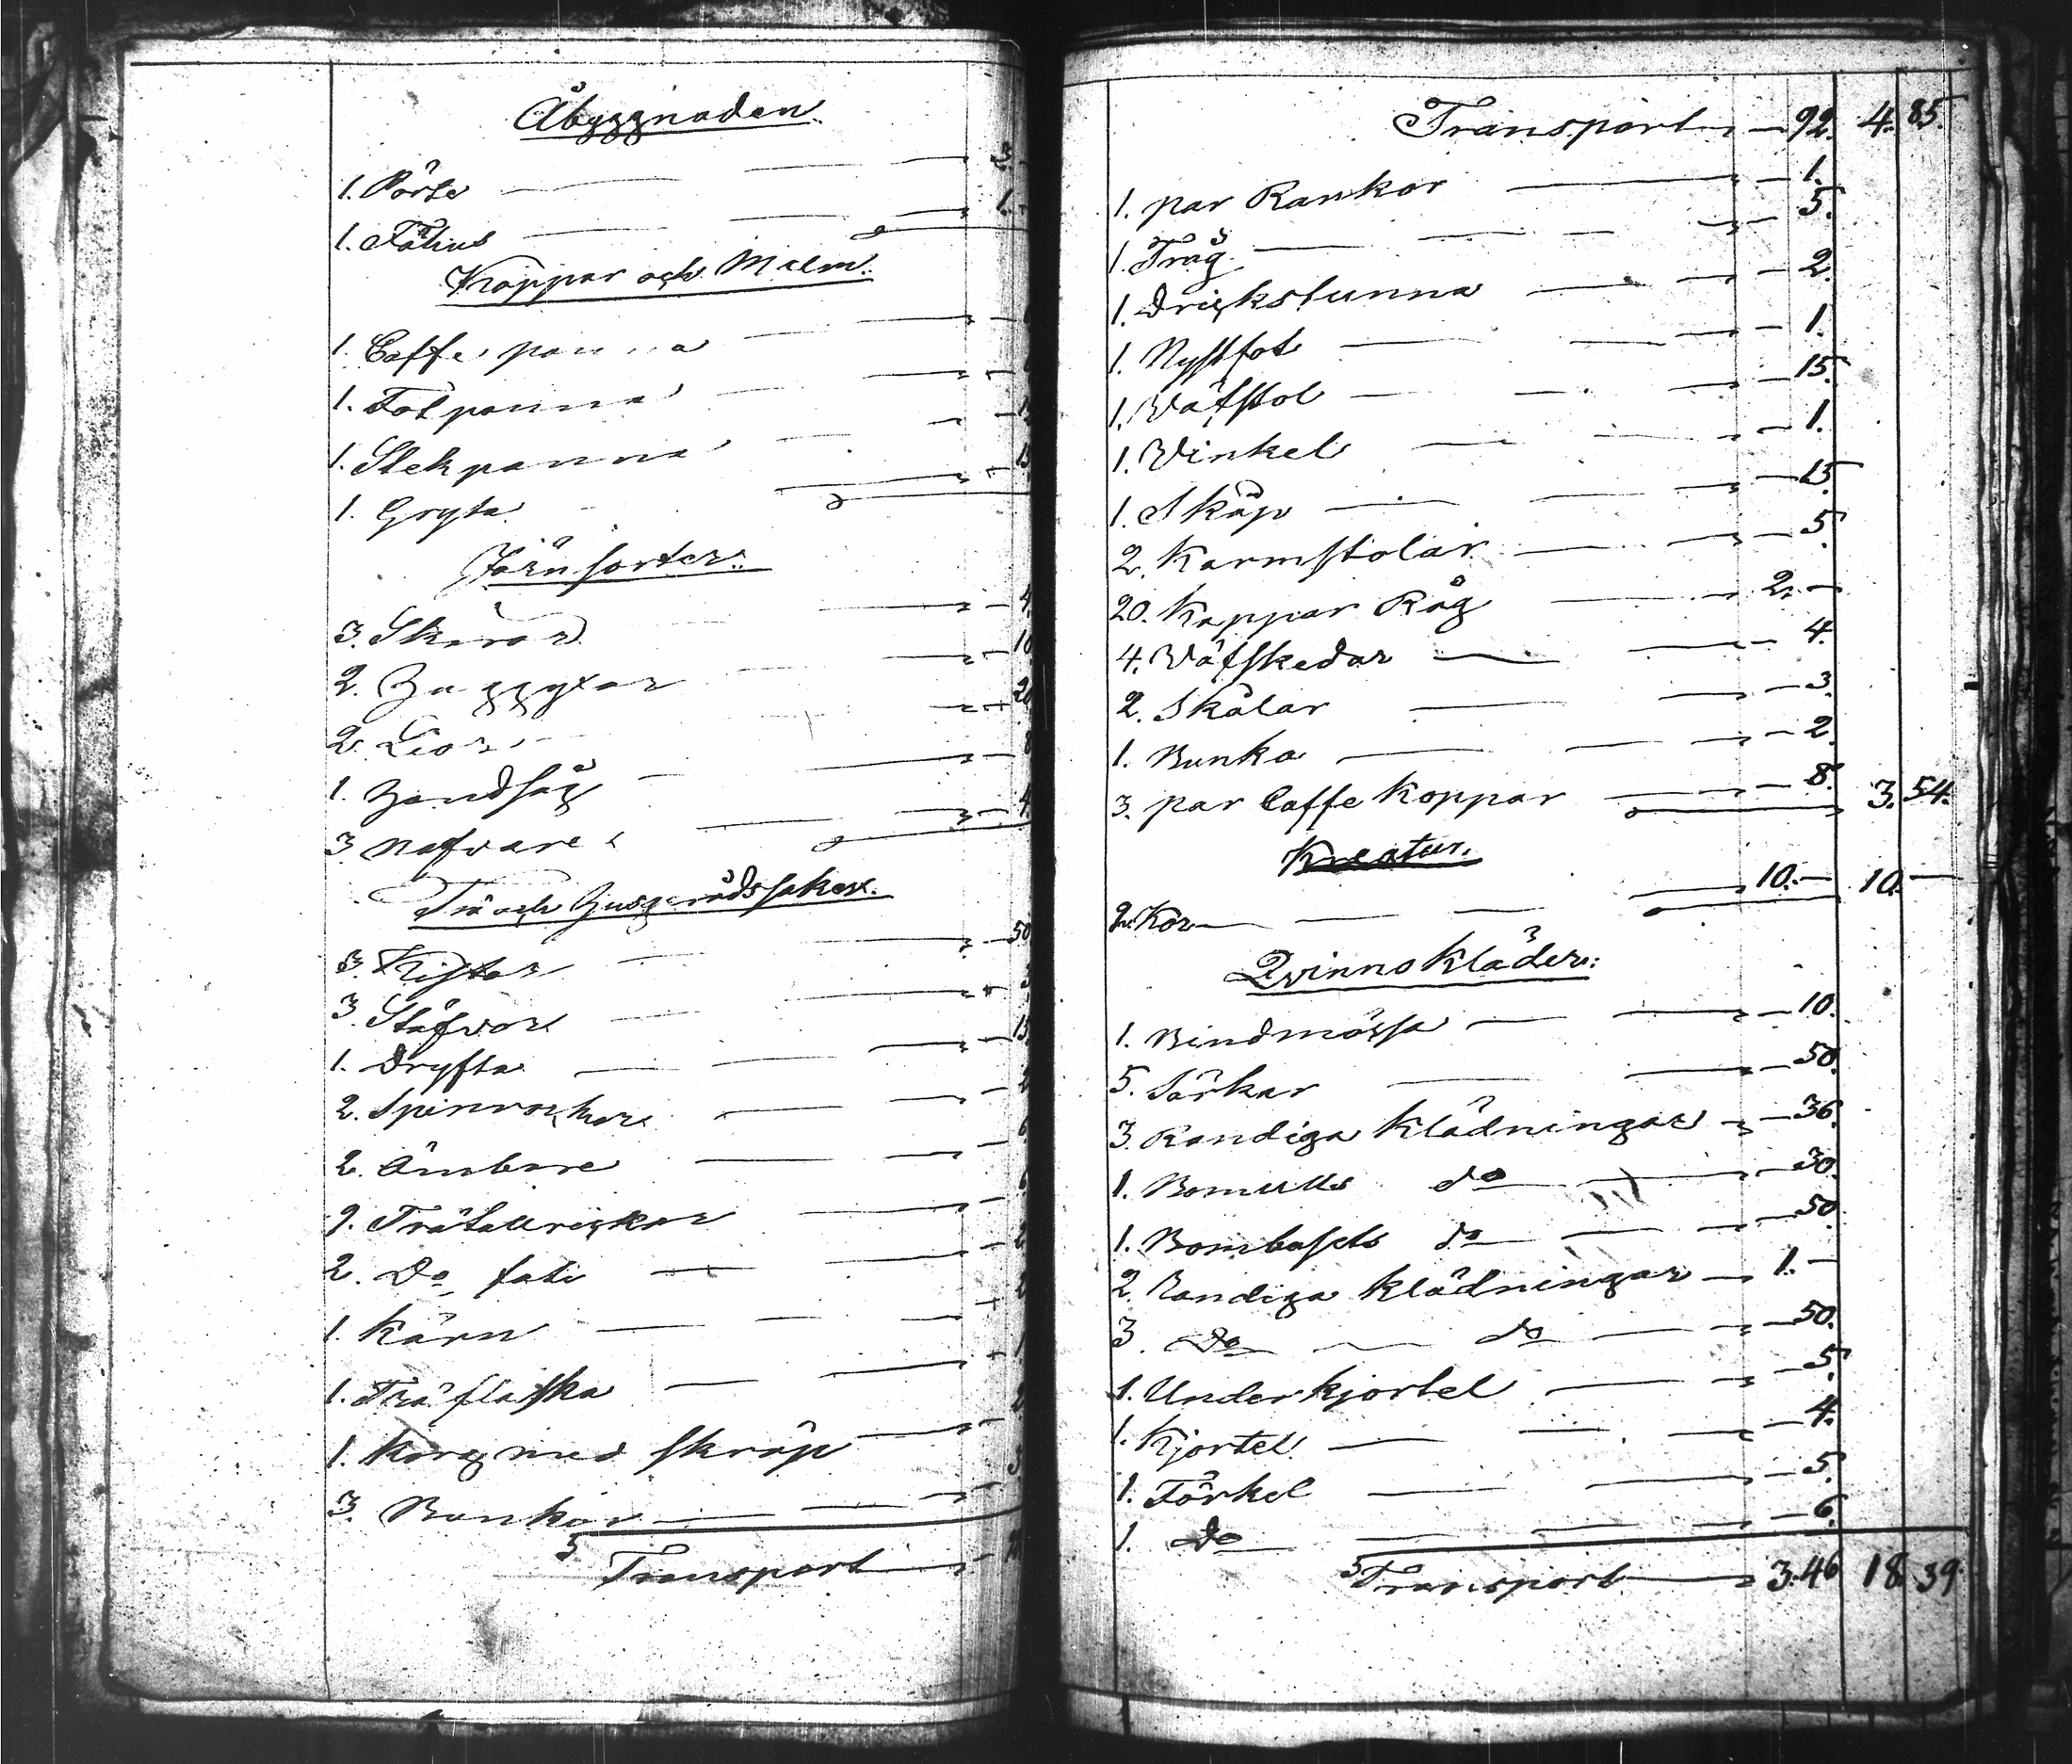 Åbyggnaden
1. Pörte 3.
1. Fähus 1.
Koppar och Malm
1. Caffe panna
1. Fotpanna
1. Stekpanna
1. Gryta
Järnsorter
3. Skäror 4
2. Huggyxor 10
2. Liar 20
1. Handsåg 8
3 nafvare 4
Trä och Husgerådssaker
3. Kistor 50
3. Stäfvor
1. Dryfta 15
2. Spinrockar
2. Ämbare 6
9. Trätallrickar
2. Do fati 2
1. Kärn 2
1. Träflaska 1
1. Korg med skräp 2
3. Bunkar 3
Transport
Transport 92. 4. 85.
1. par Rankor 1.
1. Tråg 5.
1. Drickstunna 2.
1. Nystfot 1.
1. Wäfstol 15.
1. Winkel 1.
1. Skåp 15.
2. Karmstolar 5.
20. Kappar Råg 2. —
4. Wäfskedar 4.
2. Skålar 3.
1. Bunka 2.
3. par Caffe Koppar 8. 3. 54.
Kreatur.
2. Kor 10. — 10. —
Qvinnokläder:
1. Bindmössa 10.
5. Särkar 50.
3. Randiga Klädningar 36.
1. Bomulls do 30.
1. Bombasets do 50.
2. Randiga Klädningar 1. —
3. Do do 50.
1. Underkjortel 5.
1. Kjortel 4.
1. Förkel 5.
1. Do 6.
Transport 3.46 18. 39.